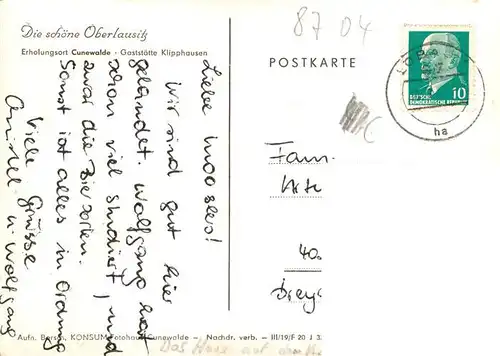 Die schöne Oberlausitz
Erholungsort Cunewalde · Gaststätte Klipphausen
8704
POSTKARTE
10
DEUTSCHE
DEMOKRATISCHE
ha
Liebe
Wir sind gut hier
gelandet. Wolfgang hat
schon viel studiert, und
zwar die Biersorten.
Sonst ist alles in Ordnung
Viele Grüsse
Christel u. Wolfgang
Fam.
40
Aufn. KONSUM Fotohaus Cunewalde – Nachdr. verb. – III/19/F 20 J 3
Das Haus auf dem